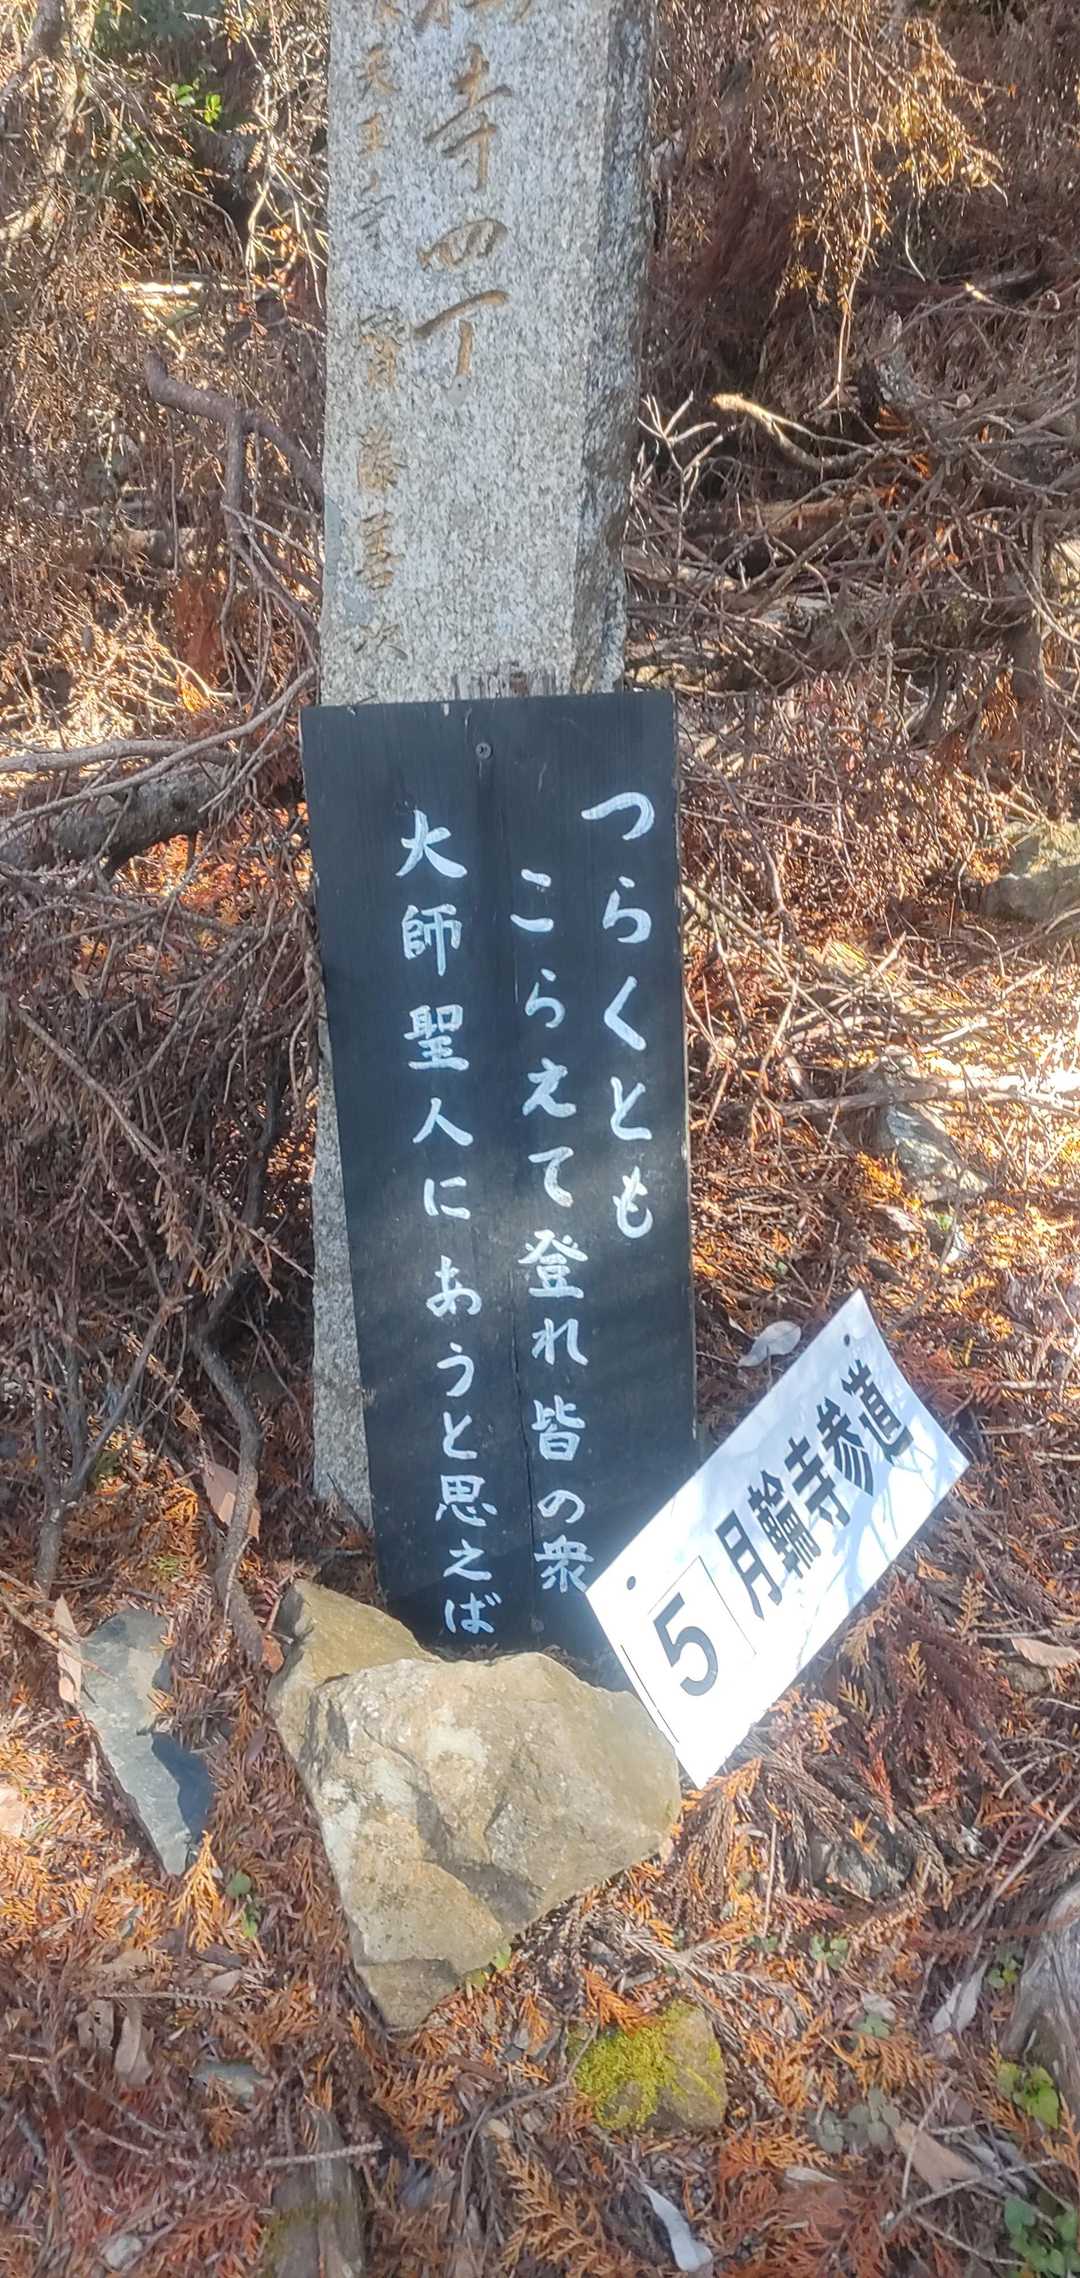 寺四丁
天王寺 斎藤善次
つらくとも
こらえて登れ皆の衆
大師聖人にあうと思えば
5 月輪寺参道